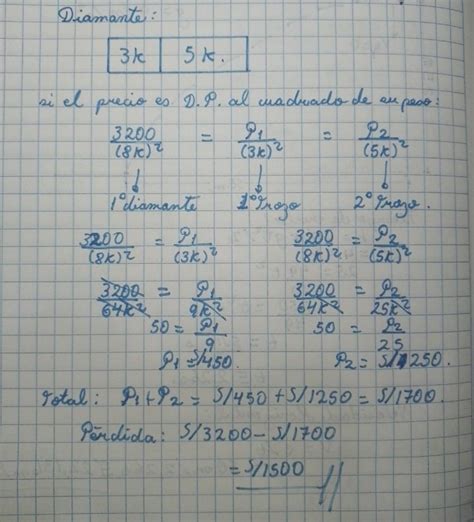 Diamante:
3k 5k.
si el precio es D.P. al cuadrado de su peso:
3200/(8k)² = P₁/(3k)² = P₂/(5k)²
1º diamante 1º trozo 2º trozo.
3200/(8k)² = P₁/(3k)² 3200/(8k)² = P₂/(5k)²
3200/64k² = P₁/9k² 3200/64k² = P₂/25k²
50 = P₁/9 50 = P₂/25
P₁ = S/450. P₂ = S/1250.
Total: P₁ + P₂ = S/450 + S/1250 = S/1700.
Pérdida: S/3200 - S/1700
= S/1500